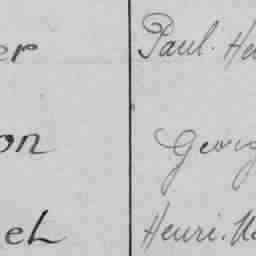 er Paul. He
on Georg
el Henri. Ne